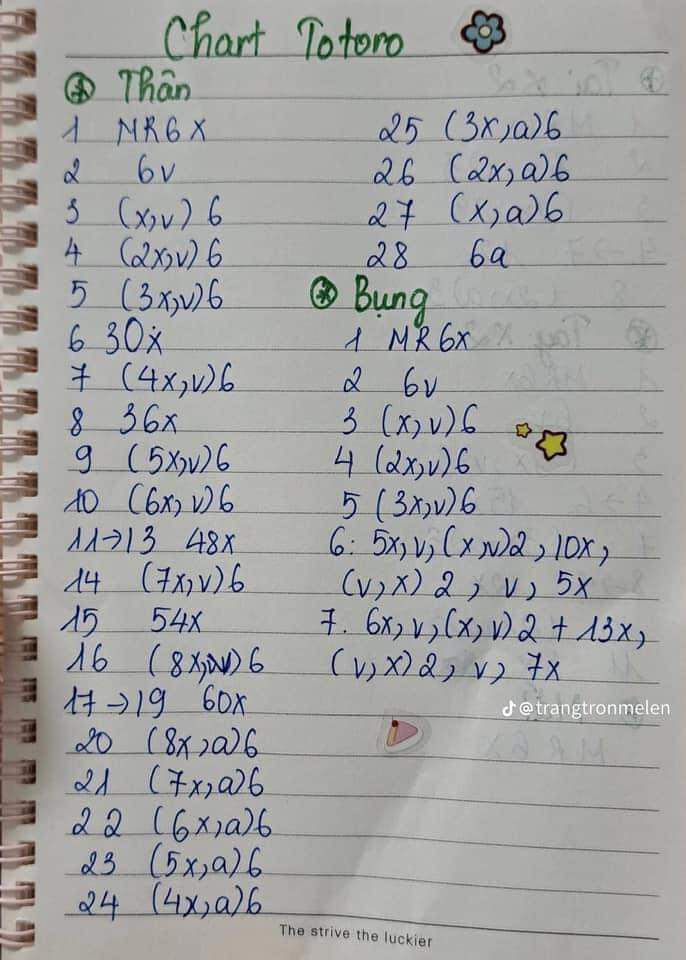 Chart Totoro
Thân
1 MR6X
2 6v
3 (x,v) 6
4 (2x,v) 6
5 (3x,v)6
6 30x
7 (4x,v)6
8 36x
9 (5x,v)6
10 (6x,v)6
11→13 48x
14 (7x,v)6
15 54x
16 (8x,v)6
17→19 60x
20 (8x,a)6
21 (7x,a)6
22 (6x,a)6
23 (5x,a)6
24 (4x,a)6
25 (3x,a)6
26 (2x,a)6
27 (x,a)6
28 6a
Bụng
1 MR6x
2 6v
3 (x,v)6
4 (2x,v)6
5 (3x,v)6
6: 5x,v,(x,v)2,10x,
(v,x)2, v, 5x
7. 6x,v,(x,v)2+13x,
(v,x)2, v, 7x
@trangtronmelen
The strive the luckier